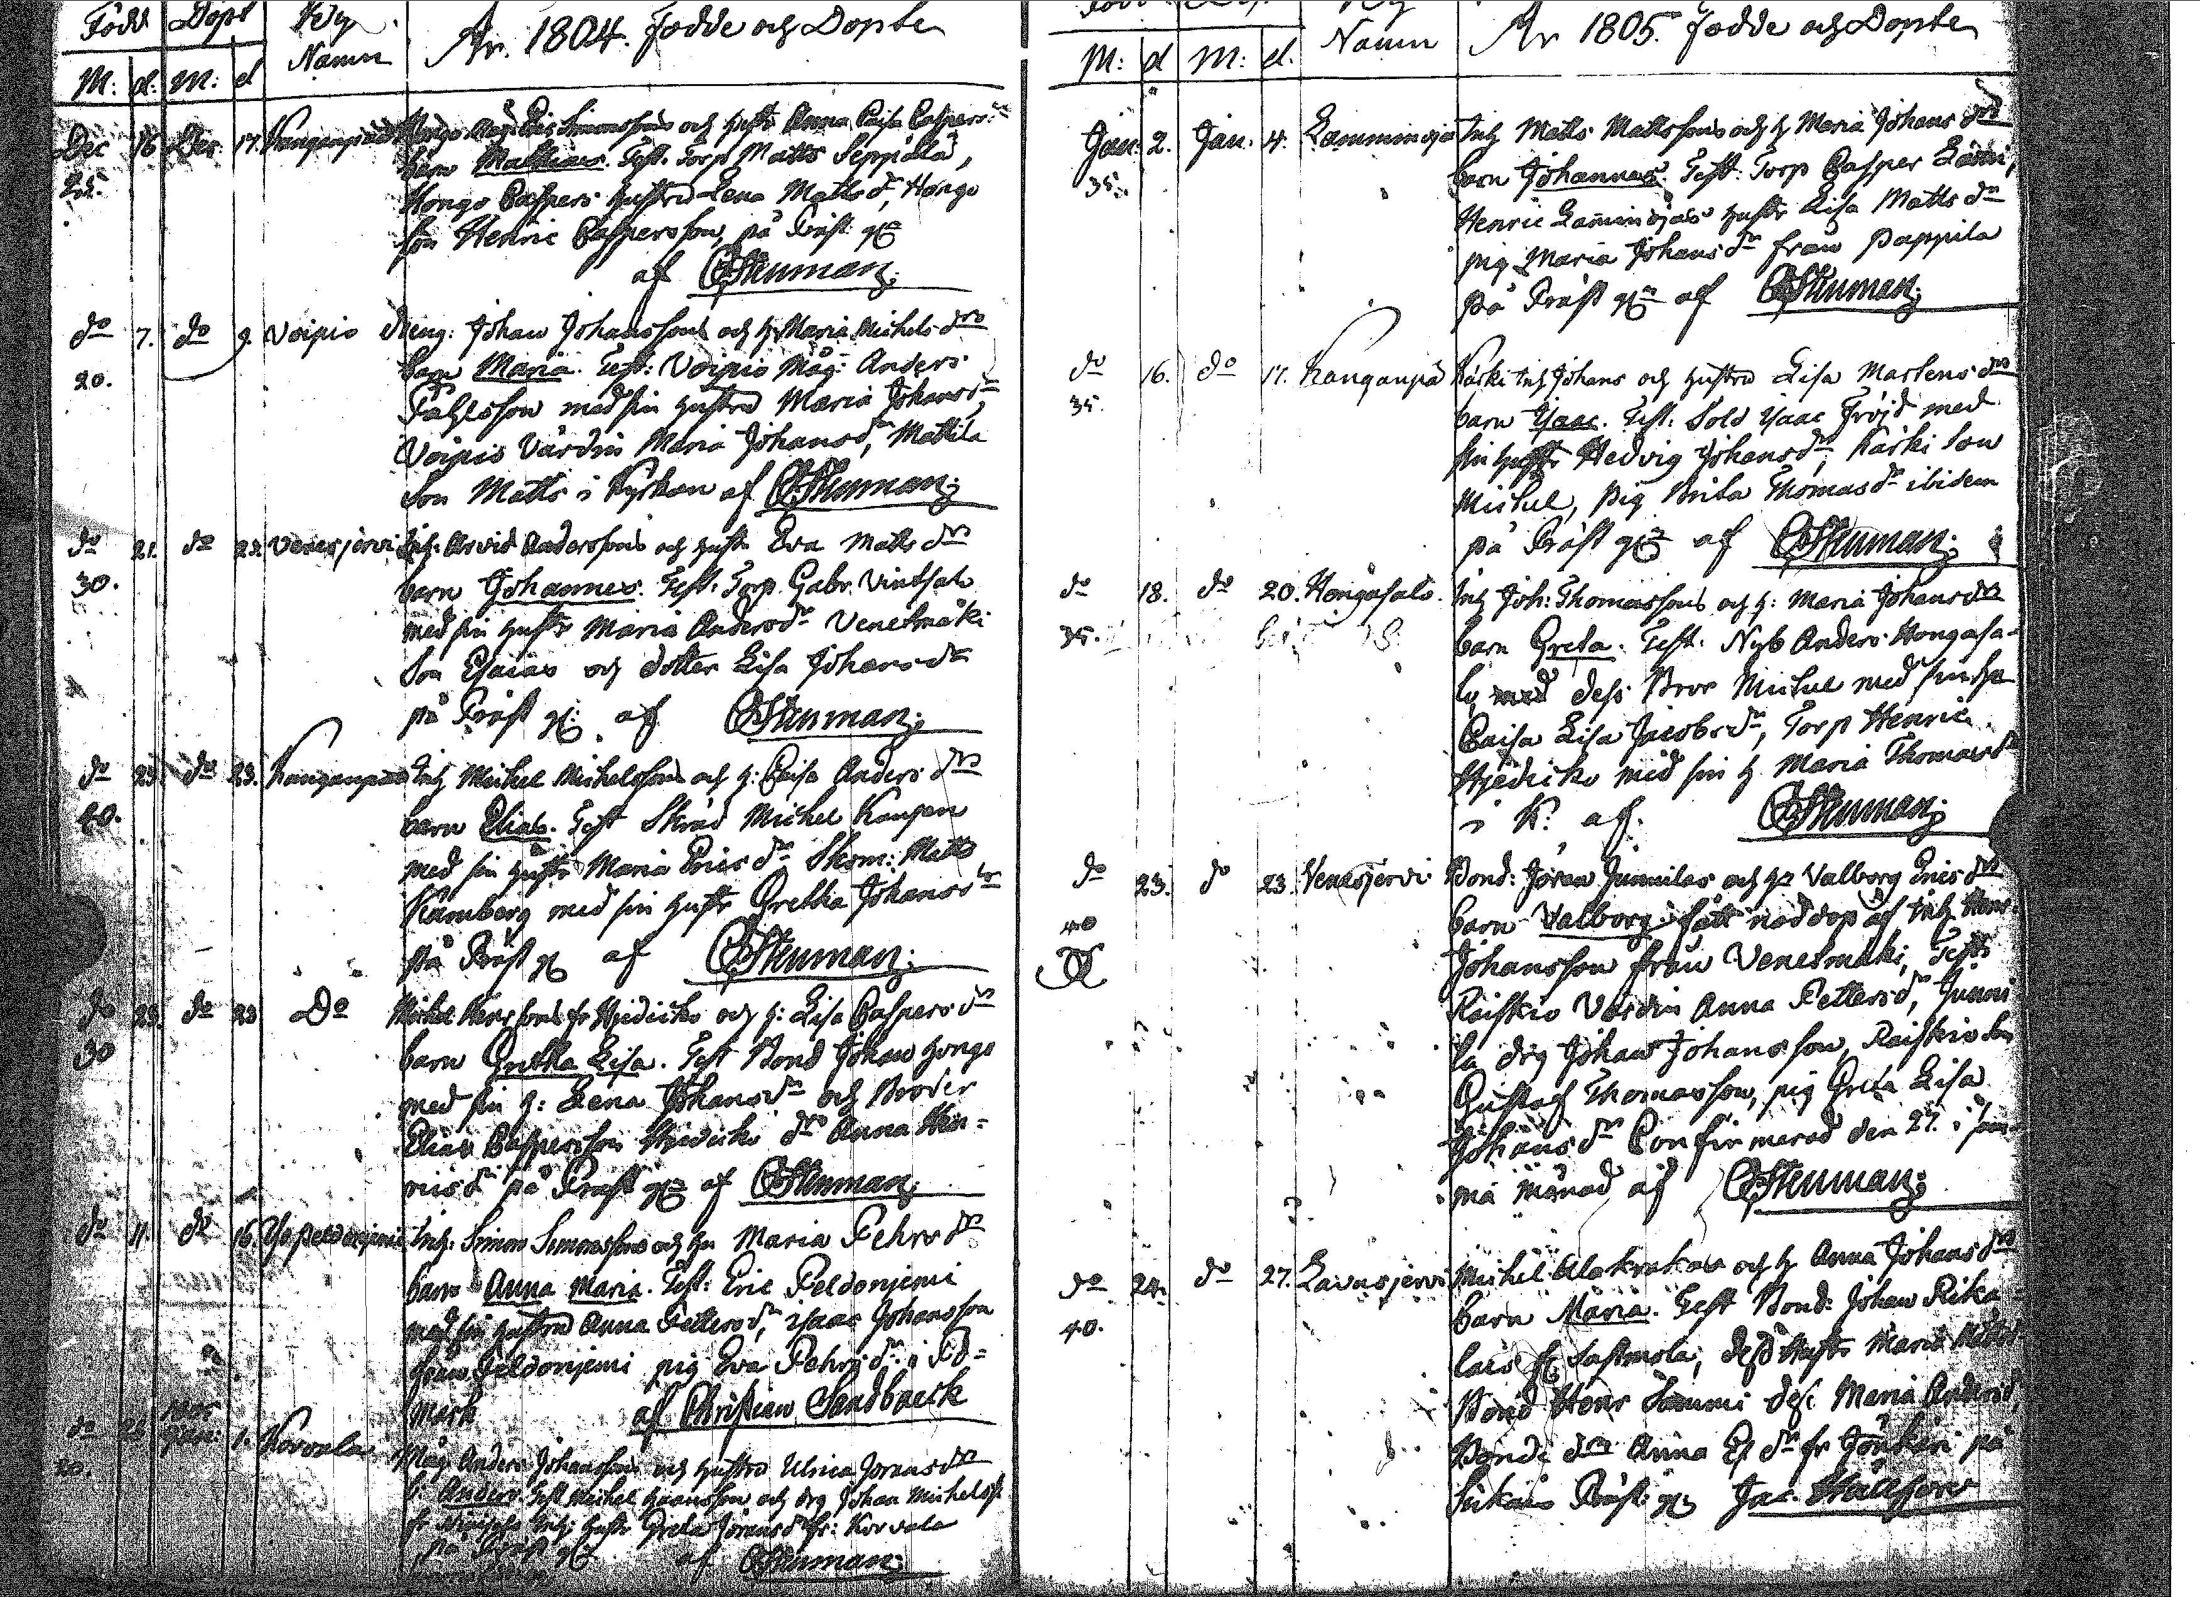 Född Döpt Byn Namn År 1804. Födde och Döpte
M: d: M: d
Dec 16 Dec 17. Kanganpää Hongo Måg Eric Simonssons och hustr Anna Caisa Caspers:
25. barn Mathias. Test. Torp Matts Seppälä,
Hongo Caspers hustru Lena Matts dr, Hongo
son Henric Caspersson, på Präst gn
af CStenman.
do 7. do 9. Voipio dreng: Johan Johanssons och h. Maria Michels drs
20. barn Maria. Test: Voipio Måg: Anders
med sin hustru Maria Johansdr
Voipio Värdin Maria Johansdr, Mattila
Son Matts i Kyrkan af CStenman.
do 21. do 22. Venesjervi Inh: Arvid Anderssons och hustr Eva Matts drs
30. barn Johannes. Test: Torp Gabr. Vintsalo
med sin hustr Maria Andersdr Venesmäki
Son Esaias och dotter Lisa Johansdr
på Präst g: af CStenman.
do 23. do 23. Kanganpää Inh Michel Michelssons och h: Caisa Anders drs
40. barn Elias. Test Skräd Michel Kangen
med sin hustr Maria Erics dr Skom: Matts
Kämberg med sin hustr Gretha Johansdr
på Präst g af CStenman.
do 23. do 23 Do Michel Henrssons fr Hjedicko och h: Lisa Caspers drs
30 barn Gretha Lisa. Test Bond Johan Hongo
med sin h: Lena Johansdr och Broder
Elias Caspersson Hjedicko dr Anna Hen-
ricsdr på Präst gn af CStenman.
do 11. do 16. Ylipeldonjemi Inh: Simon Simonssons och hu Maria Pehrs drs
barn Anna Maria. Test: Eric Peldonjemi
med sin hustru Anna Pettersdr, Isaac Johansson
från Peldonjemi pig Eva Pehrsdr i Öd-
mark af Christian Sandbaeck
do Jan: 1. Korvala Måg Anders Johanssons och hustru Ulrica Joransdrs
20. b: Anders. Test Michel Göransson och drg Johan Michelss:
Inh: hustr Greta Joransdr fr: Korvala
på Präst g af CStenman.
M: d M: d. Namn År 1805. Födde och Döpte
Jan: 2. Jan. 4. Lamminoja Inh Matts Mattssons och h Maria Johans drs
35. barn Johannes. Test: Torp Casper Lammi,
Henric Lamminojas hustr Lisa Matts dr
pig Maria Johans dr från Pappila
på Präst gn af CStenman.
do 16. do 17. Kanganpä Käski Inh Johans och hustru Lisa Martens drs
35. barn Isaac. Test: Sold Isaac Fröjd med
sin hustr Hedvig Johansdr, Käski Son
Michel, pig Brita Thomasdr ibidem
på Präst gn af CStenman.
do 18. do 20. Hongasalo. Inh Joh: Thomassons och h: Maria Johansdrs
35. barn Greta. Test: Nyb Anders Hongasa-
lo, med dess Bror Michel med sin hu
Caisa Lisa Jacobsdr, Torp Henric
Hjedicko med sin h Maria Thomasdr
i K: af. CStenman.
do 23. do 23. Venesjervi Bond: Jöran Junnilas och hu Valborg Erics drs
40 barn Valborg fått nöddop af Inh Henr.
Johansson från Venesmäki, Test:
Raiskio Värdin Anna Pettersdr, Junni
la drg Johan Johansson, Raiskio Son
Gustaf Thomasson, pig Greta Lisa
Johansdr Confirmerad den 27. i Sam-
ma månad af CStenman.
do 24. do 27. Lavasjervi Michel Alakrakas och h Anna Johans drs
40. barn Maria. Test Bond: Johan Rika
lais fr Sastmola, dess Hustr Maria Mattsd
Bond Henr Sammi dess Maria Andersd,
Bonde drn Anna Es dr fr Jonkari på
Siikais Präst: g: Jac. Hällfors